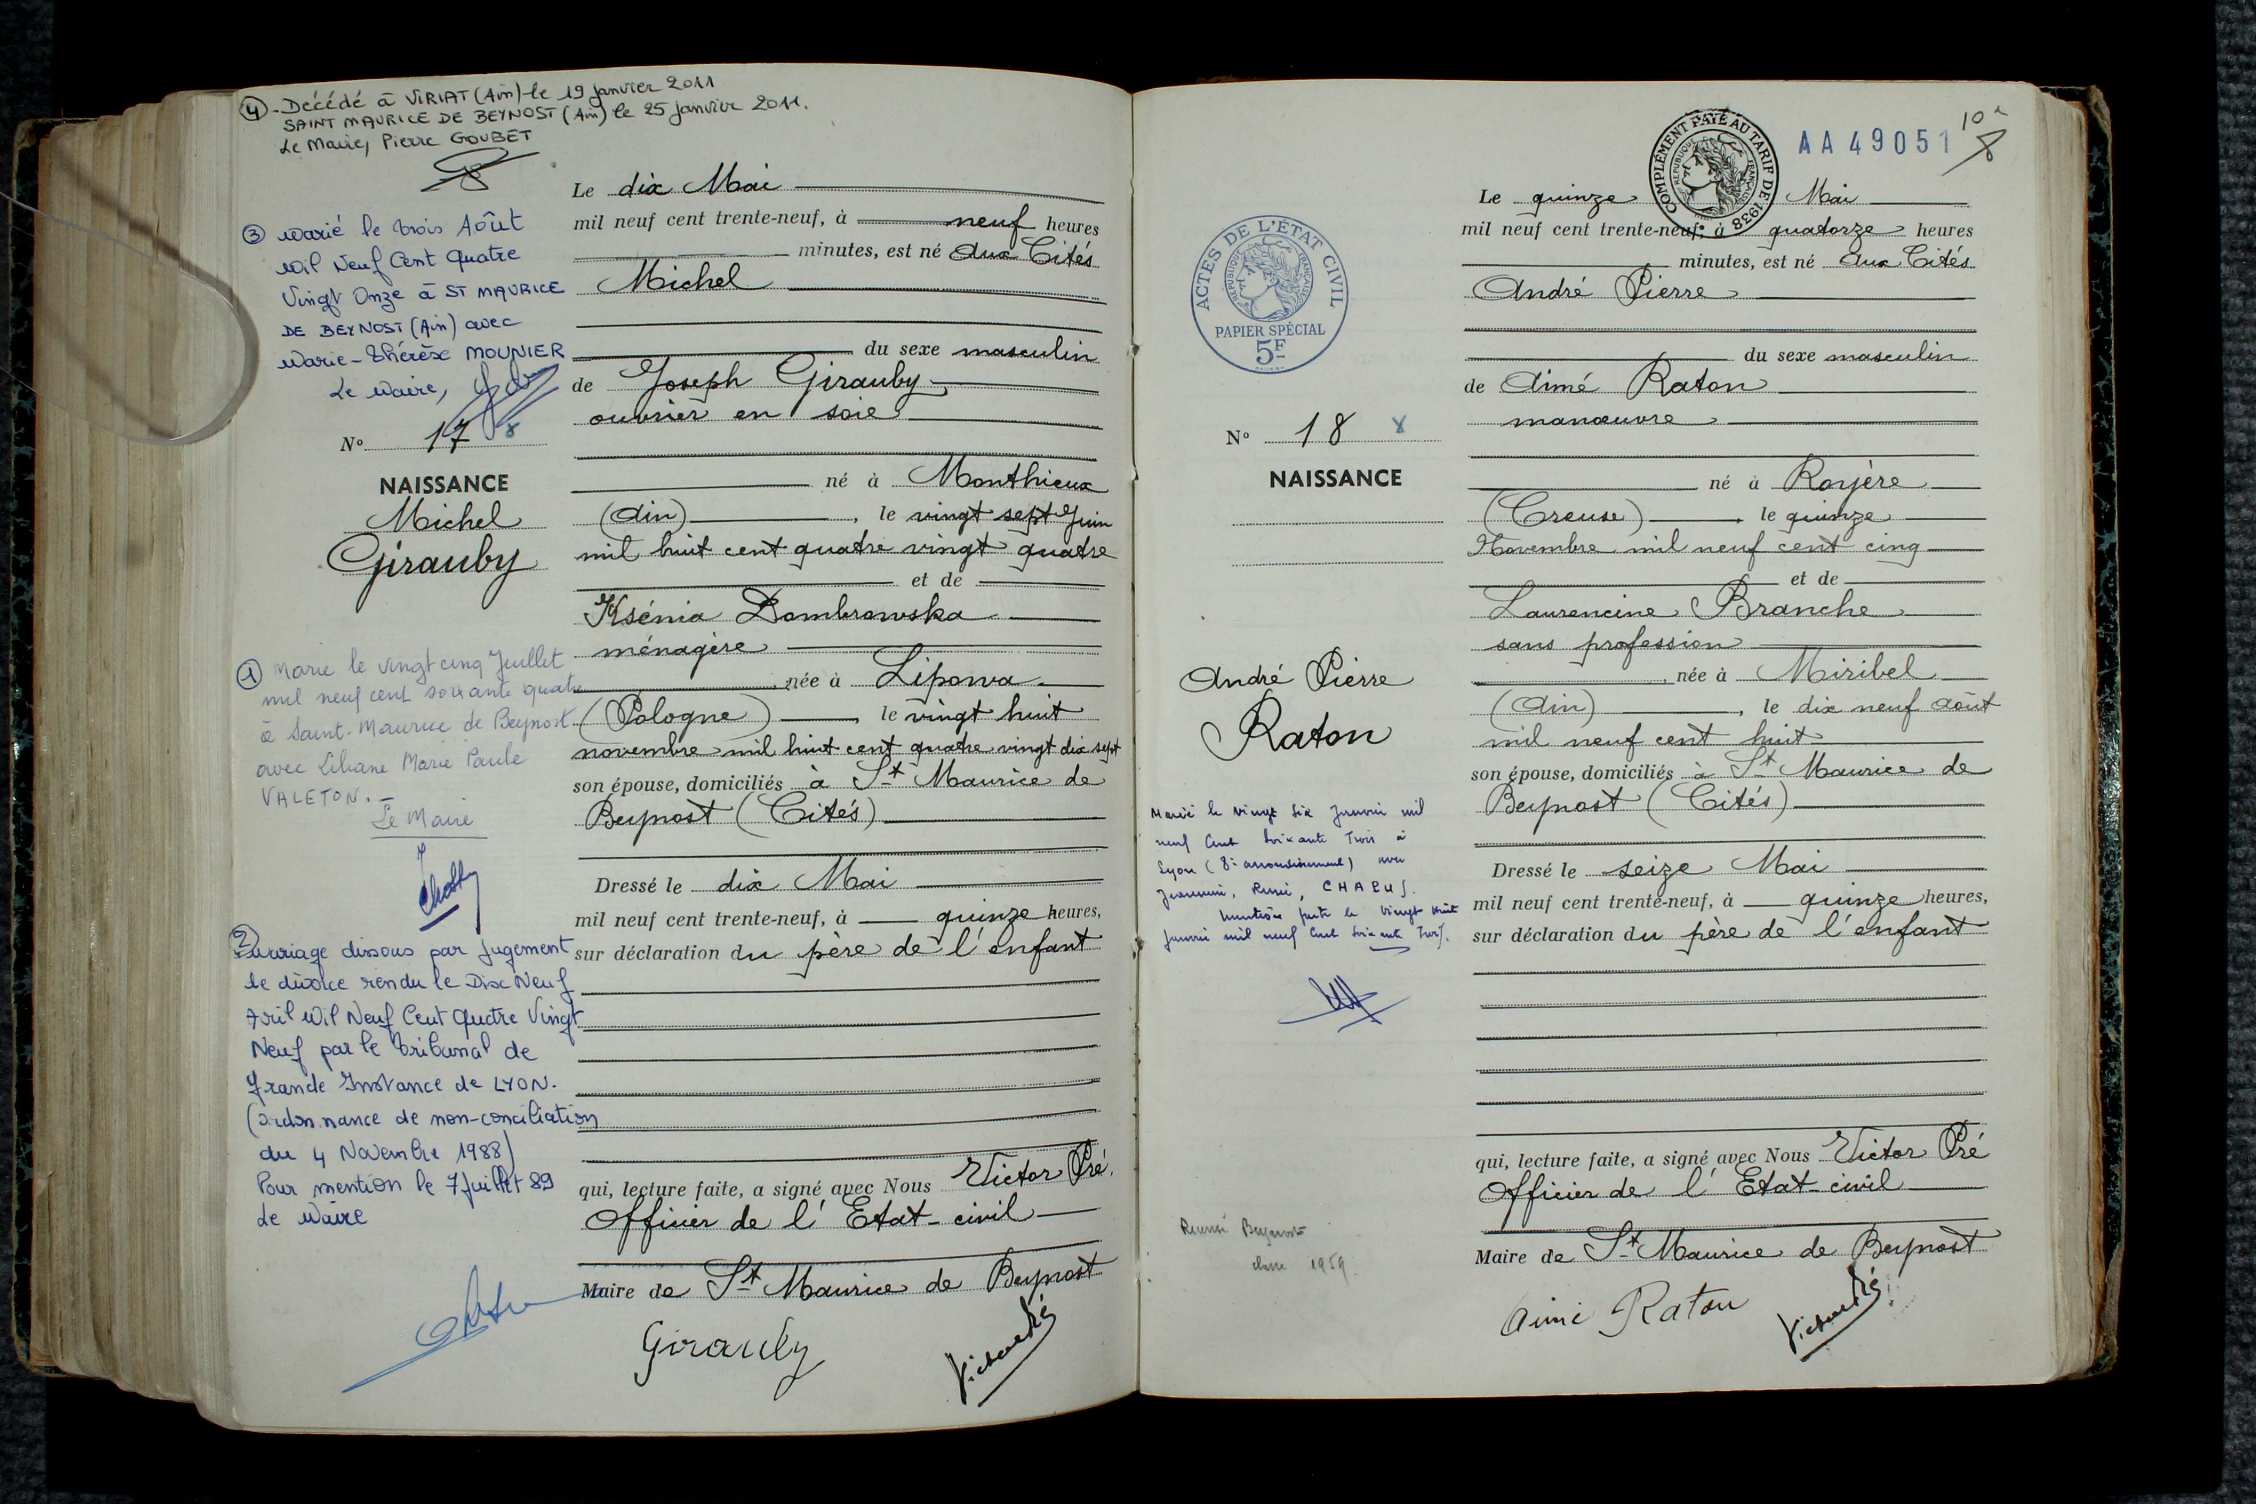 ④ - Décédé à VIRIAT (Ain) le 19 janvier 2011
SAINT MAURICE DE BEYNOST (Ain) le 25 janvier 2011.
Le Maire, Pierre GOUBET
③ Marié le trois Août
Mil Neuf Cent Quatre
Vingt Onze à ST MAURICE
DE BEYNOST (Ain) avec
Marie-Thérèse MOUNIER
Le Maire,
N° 17
NAISSANCE
Michel
Girauby
① Marié le vingt cinq Juillet
mil neuf cent soixante quatre
à Saint-Maurice de Beynost
avec Liliane Marie Paule
VALETON. -
Le Maire
② Mariage dissous par jugement
de divorce rendu le Dix Neuf
Avril Mil Neuf Cent Quatre Vingt
Neuf par le Tribunal de
Grande Instance de LYON.
(Ordonnance de non-conciliation
du 4 Novembre 1988)
Pour mention le 7 Juillet 89
Le Maire
Le dix Mai
mil neuf cent trente-neuf, à neuf heures
minutes, est né aux Cités
Michel
du sexe masculin
de Joseph Girauby
ouvrier en soie
né à Monthieux
(Ain), le vingt sept Juin
mil huit cent quatre vingt quatre
et de
Ksénia Dombrowska
ménagère
née à Lipowa
(Pologne), le vingt huit
novembre mil huit cent quatre vingt dix sept
son épouse, domiciliés à St Maurice de
Beynost (Cités)
Dressé le dix Mai
mil neuf cent trente-neuf, à quinze heures,
sur déclaration du père de l'enfant
qui, lecture faite, a signé avec Nous Victor Pré
Officier de l'Etat-civil
Maire de St Maurice de Beynost
Girauby
Victor Pré
AA 49051
COMPLÉMENT PAYÉ AU TARIF DE 1938
RÉPUBLIQUE FRANÇAISE
ACTES DE L'ÉTAT CIVIL
RÉPUBLIQUE FRANÇAISE
PAPIER SPÉCIAL
5F
N° 18
NAISSANCE
André Pierre
Raton
Marié le vingt six Janvier mil
neuf cent soixante trois à
Lyon (8e arrondissement) avec
CHAPUS.
Mention faite le vingt huit
Janvier mil neuf cent soixante trois.
Beynost
classe 1959.
Le quinze Mai
mil neuf cent trente-neuf, à quatorze heures
minutes, est né aux Cités
André Pierre
du sexe masculin
de Aimé Raton
manœuvre
né à Royère
(Creuse), le quinze
Novembre mil neuf cent cinq
et de
Laurencine Branche
sans profession
née à Miribel
(Ain), le dix neuf août
mil neuf cent huit
son épouse, domiciliés à St Maurice de
Beynost (Cités)
Dressé le seize Mai
mil neuf cent trente-neuf, à quinze heures,
sur déclaration du père de l'enfant
qui, lecture faite, a signé avec Nous Victor Pré
Officier de l'Etat-civil
Maire de St Maurice de Beynost
Aimé Raton
Victor Pré